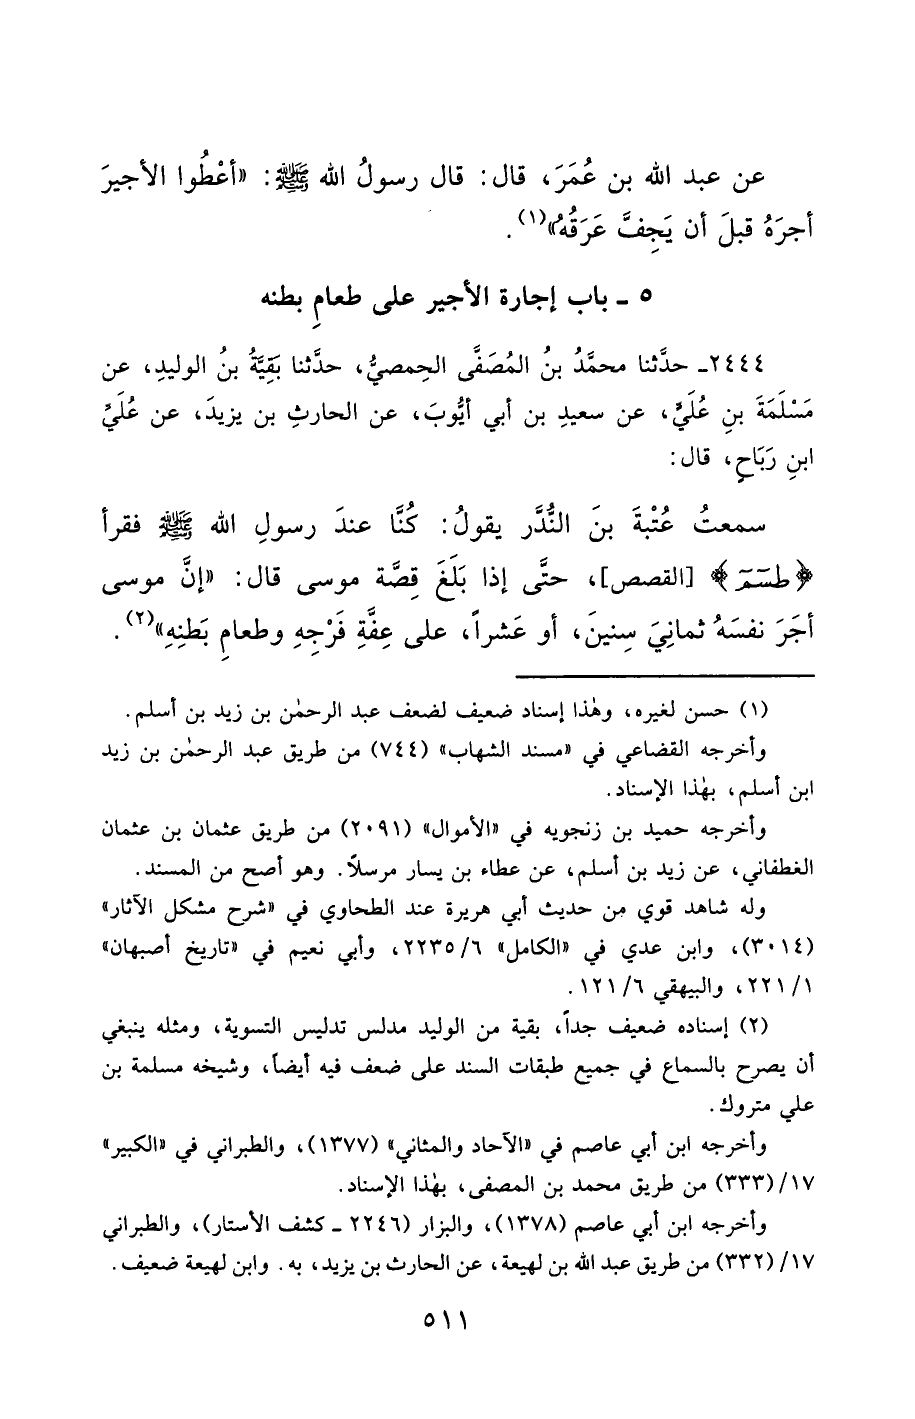 عن عبد الله بن عُمَرَ، قال: قال رسولُ الله ﷺ: «أعْطُوا الأجيرَ
أجرَهُ قبلَ أن يَجِفَّ عَرَقُهُ»(١).
٥ ـ باب إجارة الأجير على طعامِ بطنه
٢٤٤٤ـ حدَّثنا محمَّدُ بنُ المُصَفَّى الحِمصيُّ، حدَّثنا بَقِيَّةُ بنُ الوليدِ، عن
مَسْلَمَةَ بنِ عُلَيٍّ، عن سعيدِ بن أبي أيُّوبَ، عن الحارثِ بن يزيدَ، عن عُلَيِّ
ابنِ رَبَاحٍ، قال:
سمعتُ عُتْبةَ بنَ النُّدَّر يقولُ: كُنَّا عندَ رسولِ الله ﷺ فقرأ
﴿طسٓمٓ﴾ [القصص]، حتَّى إذا بَلَغَ قِصَّة موسى قال: «إنَّ موسى
أجَرَ نفسَهُ ثمانِيَ سِنينَ، أو عَشراً، على عِفَّةِ فَرْجِهِ وطعامِ بَطنِهِ»(٢).
(١) حسن لغيره، وهٰذا إسناد ضعيف لضعف عبد الرحمٰن بن زيد بن أسلم.
وأخرجه القضاعي في «مسند الشهاب» (٧٤٤) من طريق عبد الرحمٰن بن زيد
ابن أسلم، بهٰذا الإسناد.
وأخرجه حميد بن زنجويه في «الأموال» (٢٠٩١) من طريق عثمان بن عثمان
الغطفاني، عن زيد بن أسلم، عن عطاء بن يسار مرسلاً. وهو أصح من المسند.
وله شاهد قوي من حديث أبي هريرة عند الطحاوي في «شرح مشكل الآثار»
(٣٠١٤)، وابن عدي في «الكامل» ٢٢٣٥/٦، وأبي نعيم في «تاريخ أصبهان»
٢٢١/١، والبيهقي ١٢١/٦.
(٢) إسناده ضعيف جداً، بقية من الوليد مدلس تدليس التسوية، ومثله ينبغي
أن يصرح بالسماع في جميع طبقات السند على ضعف فيه أيضاً، وشيخه مسلمة بن
علي متروك.
وأخرجه ابن أبي عاصم في «الآحاد والمثاني» (١٣٧٧)، والطبراني في «الكبير»
١٧/(٣٣٣) من طريق محمد بن المصفى، بهٰذا الإسناد.
وأخرجه ابن أبي عاصم (١٣٧٨)، والبزار (٢٢٤٦ ـ كشف الأستار)، والطبراني
١٧/(٣٣٢) من طريق عبد الله بن لهيعة، عن الحارث بن يزيد، به. وابن لهيعة ضعيف.
٥١١